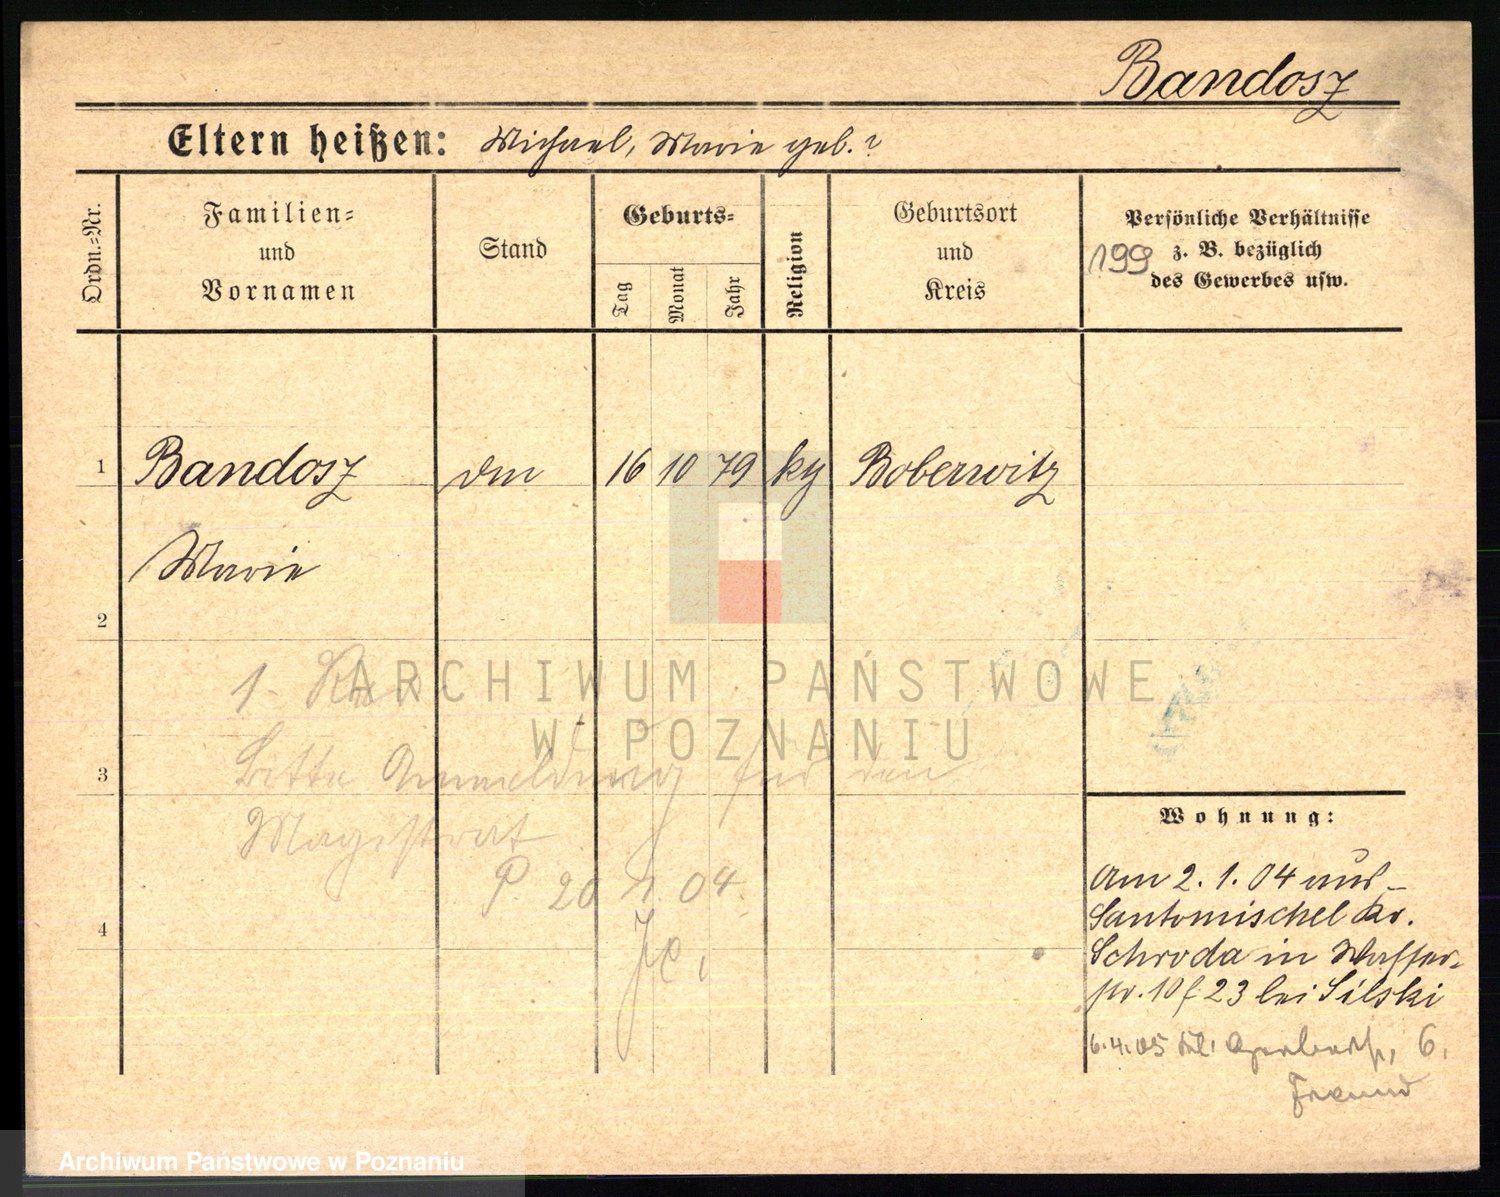 Bandosz
Eltern heißen: Michael, Marie geb.?
Ordn.=Nr.
Familien=
und
Vornamen
Stand
Geburts=
Tag
Monat
Jahr
Religion
Geburtsort
und
Kreis
Persönliche Verhältnisse
z. B. bezüglich
des Gewerbes usw.
199
1 Bandosz 16 10 79 Boberwitz
Marie
2
1.
3 Bitte Anmeldung für den
Magistrat
P. 20 1. 04.
4
Wohnung:
Am 2. 1. 04 aus
Santomischel Kr.
Schroda in Wasser-
str. 23 bei Silski
6.4.05 6.
Freund
ARCHIWUM PAŃSTWOWE
W POZNANIU
Archiwum Państwowe w Poznaniu